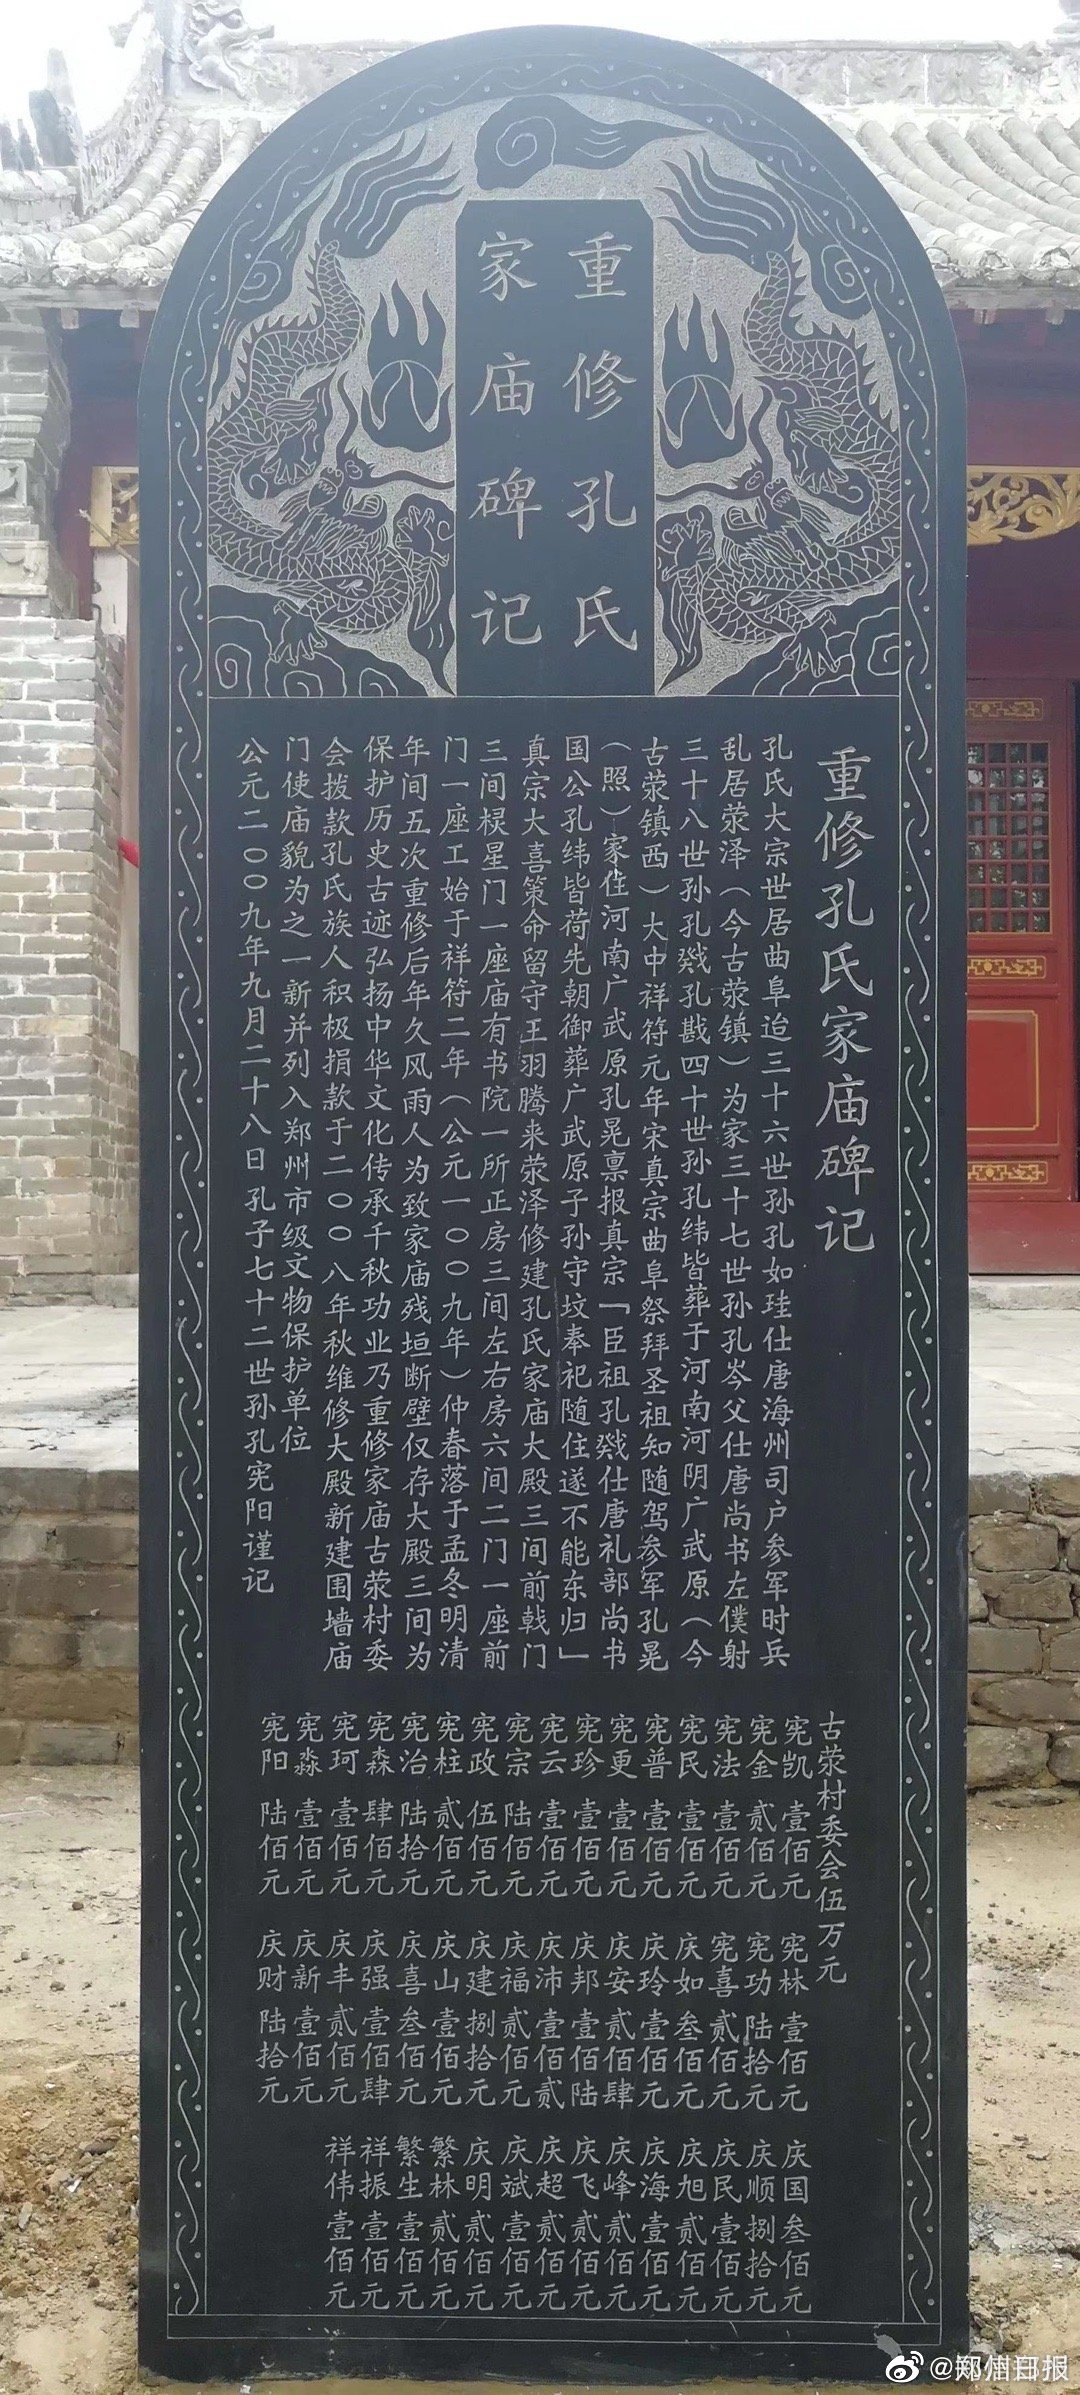 重修孔氏
家庙碑记
重修孔氏家庙碑记
孔氏大宗世居曲阜迨三十六世孙孔如珪仕唐海州司户参军时兵
乱居荥泽（今古荥镇）为家三十七世孙孔岑父仕唐尚书左僕射
三十八世孙孔戣孔戡四十世孙孔纬皆葬于河南河阴广武原（今
古荥镇西）大中祥符元年宋真宗曲阜祭拜圣祖知随驾参军孔晃
（照）家住河南广武原孔晃禀报真宗「臣祖孔戣仕唐礼部尚书
国公孔纬皆荷先朝御葬广武原子孙守坟奉祀随住遂不能东归」
真宗大喜策命留守王羽腾来荥泽修建孔氏家庙大殿三间前戟门
三间棂星门一座庙有书院一所正房三间左右房六间二门一座前
门一座工始于祥符二年（公元一00九年）仲春落于孟冬明清
年间五次重修后年久风雨人为致家庙残垣断壁仅存大殿三间为
保护历史古迹弘扬中华文化传承千秋功业乃重修家庙古荥村委
会拨款孔氏族人积极捐款于二00八年秋维修大殿新建围墙庙
门使庙貌为之一新并列入郑州市级文物保护单位
公元二00九年九月二十八日孔子七十二世孙孔宪阳谨记
古荥村委会伍万元
宪凯 壹佰元
宪金 贰佰元
宪法 壹佰元
宪民 壹佰元
宪普 壹佰元
宪更 壹佰元
宪珍 壹佰元
宪云 壹佰元
宪宗 陆佰元
宪政 伍佰元
宪柱 贰佰元
宪治 陆拾元
宪森 肆佰元
宪珂 壹佰元
宪淼 壹佰元
宪阳 陆佰元
宪林 壹佰元
宪功 陆拾元
宪喜 贰佰元
庆如 叁佰元
庆玲 壹佰元
庆安 贰佰肆
庆邦 壹佰陆
庆沛 壹佰贰
庆福 贰佰元
庆建 捌拾元
庆山 壹佰元
庆喜 叁佰元
庆强 壹佰肆
庆丰 贰佰元
庆新 壹佰元
庆财 陆拾元
庆国 叁佰元
庆顺 捌拾元
庆民 壹佰元
庆旭 贰佰元
庆海 壹佰元
庆峰 贰佰元
庆飞 贰佰元
庆超 贰佰元
庆斌 壹佰元
庆明 贰佰元
繁林 贰佰元
繁生 壹佰元
祥振 壹佰元
祥伟 壹佰元
@郑州日报